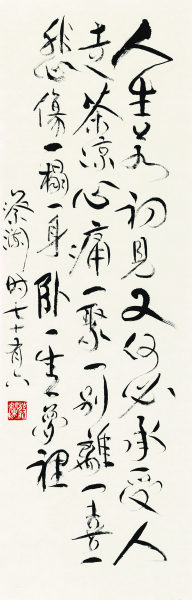 人生若初見又何必承受人
走茶涼心痛一聚一別離一喜一
悲傷一榻一身卧一生一夢裡
蔡瀾時七十有六